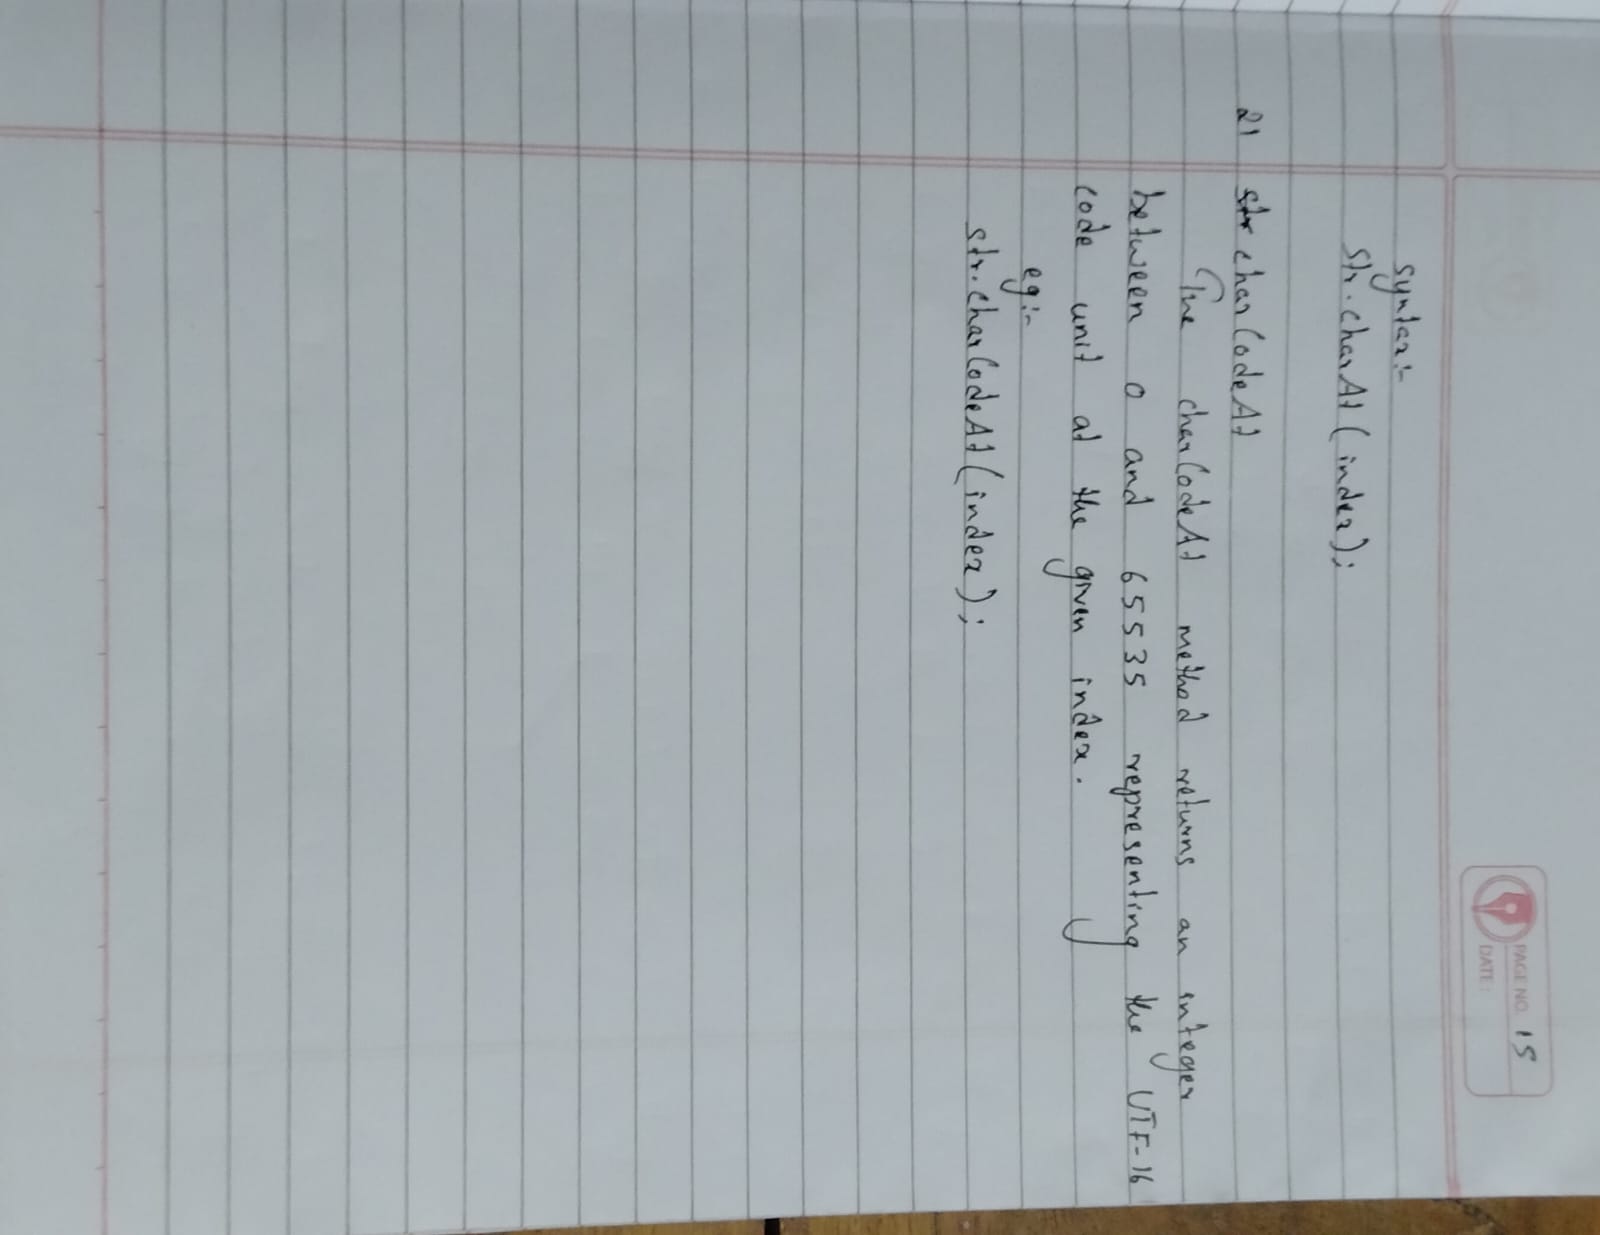 PAGE NO. 15
DATE:
syntax:-
str.charAt (index);
21 str charCodeAt
The charCodeAt method returns an integer
between 0 and 65535 representing the UTF-16
code unit at the given index.
eg:-
str.charCodeAt (index);